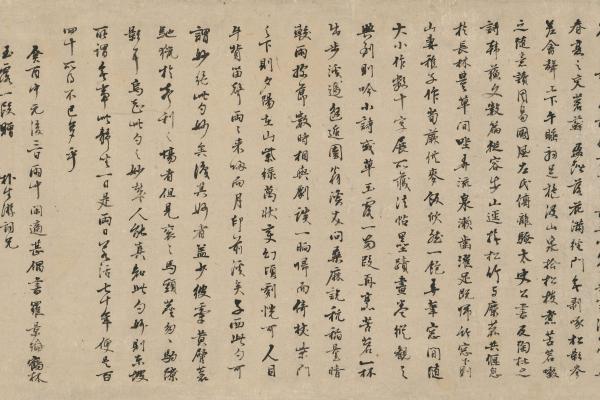 春夏之交蒼蘚盈階落花滿徑門無剝啄松影參
差禽聲上下午睡初足旋汲山泉拾松枝煮苦茗啜
之隨意讀周易國風左氏傳離騷太史公書及陶杜之
詩韓蘇文數篇從容步山逕撫松竹與麋鹿共偃息
於長林豐草間坐弄流泉漱齒濯足既歸竹窓下則
山妻稚子作筍蕨供麥飯欣然一飽弄筆窓間隨
大小作數十字展所藏法帖墨蹟畫卷縱觀之
興到則吟小詩或草玉露一兩段再烹苦茗一杯
出步溪邊邂逅園翁溪友問桑麻說秔稻量晴
較雨探節數時相與劇談一晌歸而倚杖柴門
之下則夕陽在山紫綠萬狀變幻頃刻恍可人目
牛背笛聲兩兩來歸而月印前溪矣子西此句可
謂妙絕此句妙矣識其妙者蓋少彼牽黃臂蒼
馳獵於聲利之場者但見衮衮馬頭塵匆匆駒隙
影耳烏知此句之妙哉人能真知此句妙則東坡
所謂無事此靜坐一日是兩日若活七十年便是百
四十所得不已多乎
癸酉中元後三日雨中閒適甚偶書羅景綸鶴林
玉露一段贈 詞兄